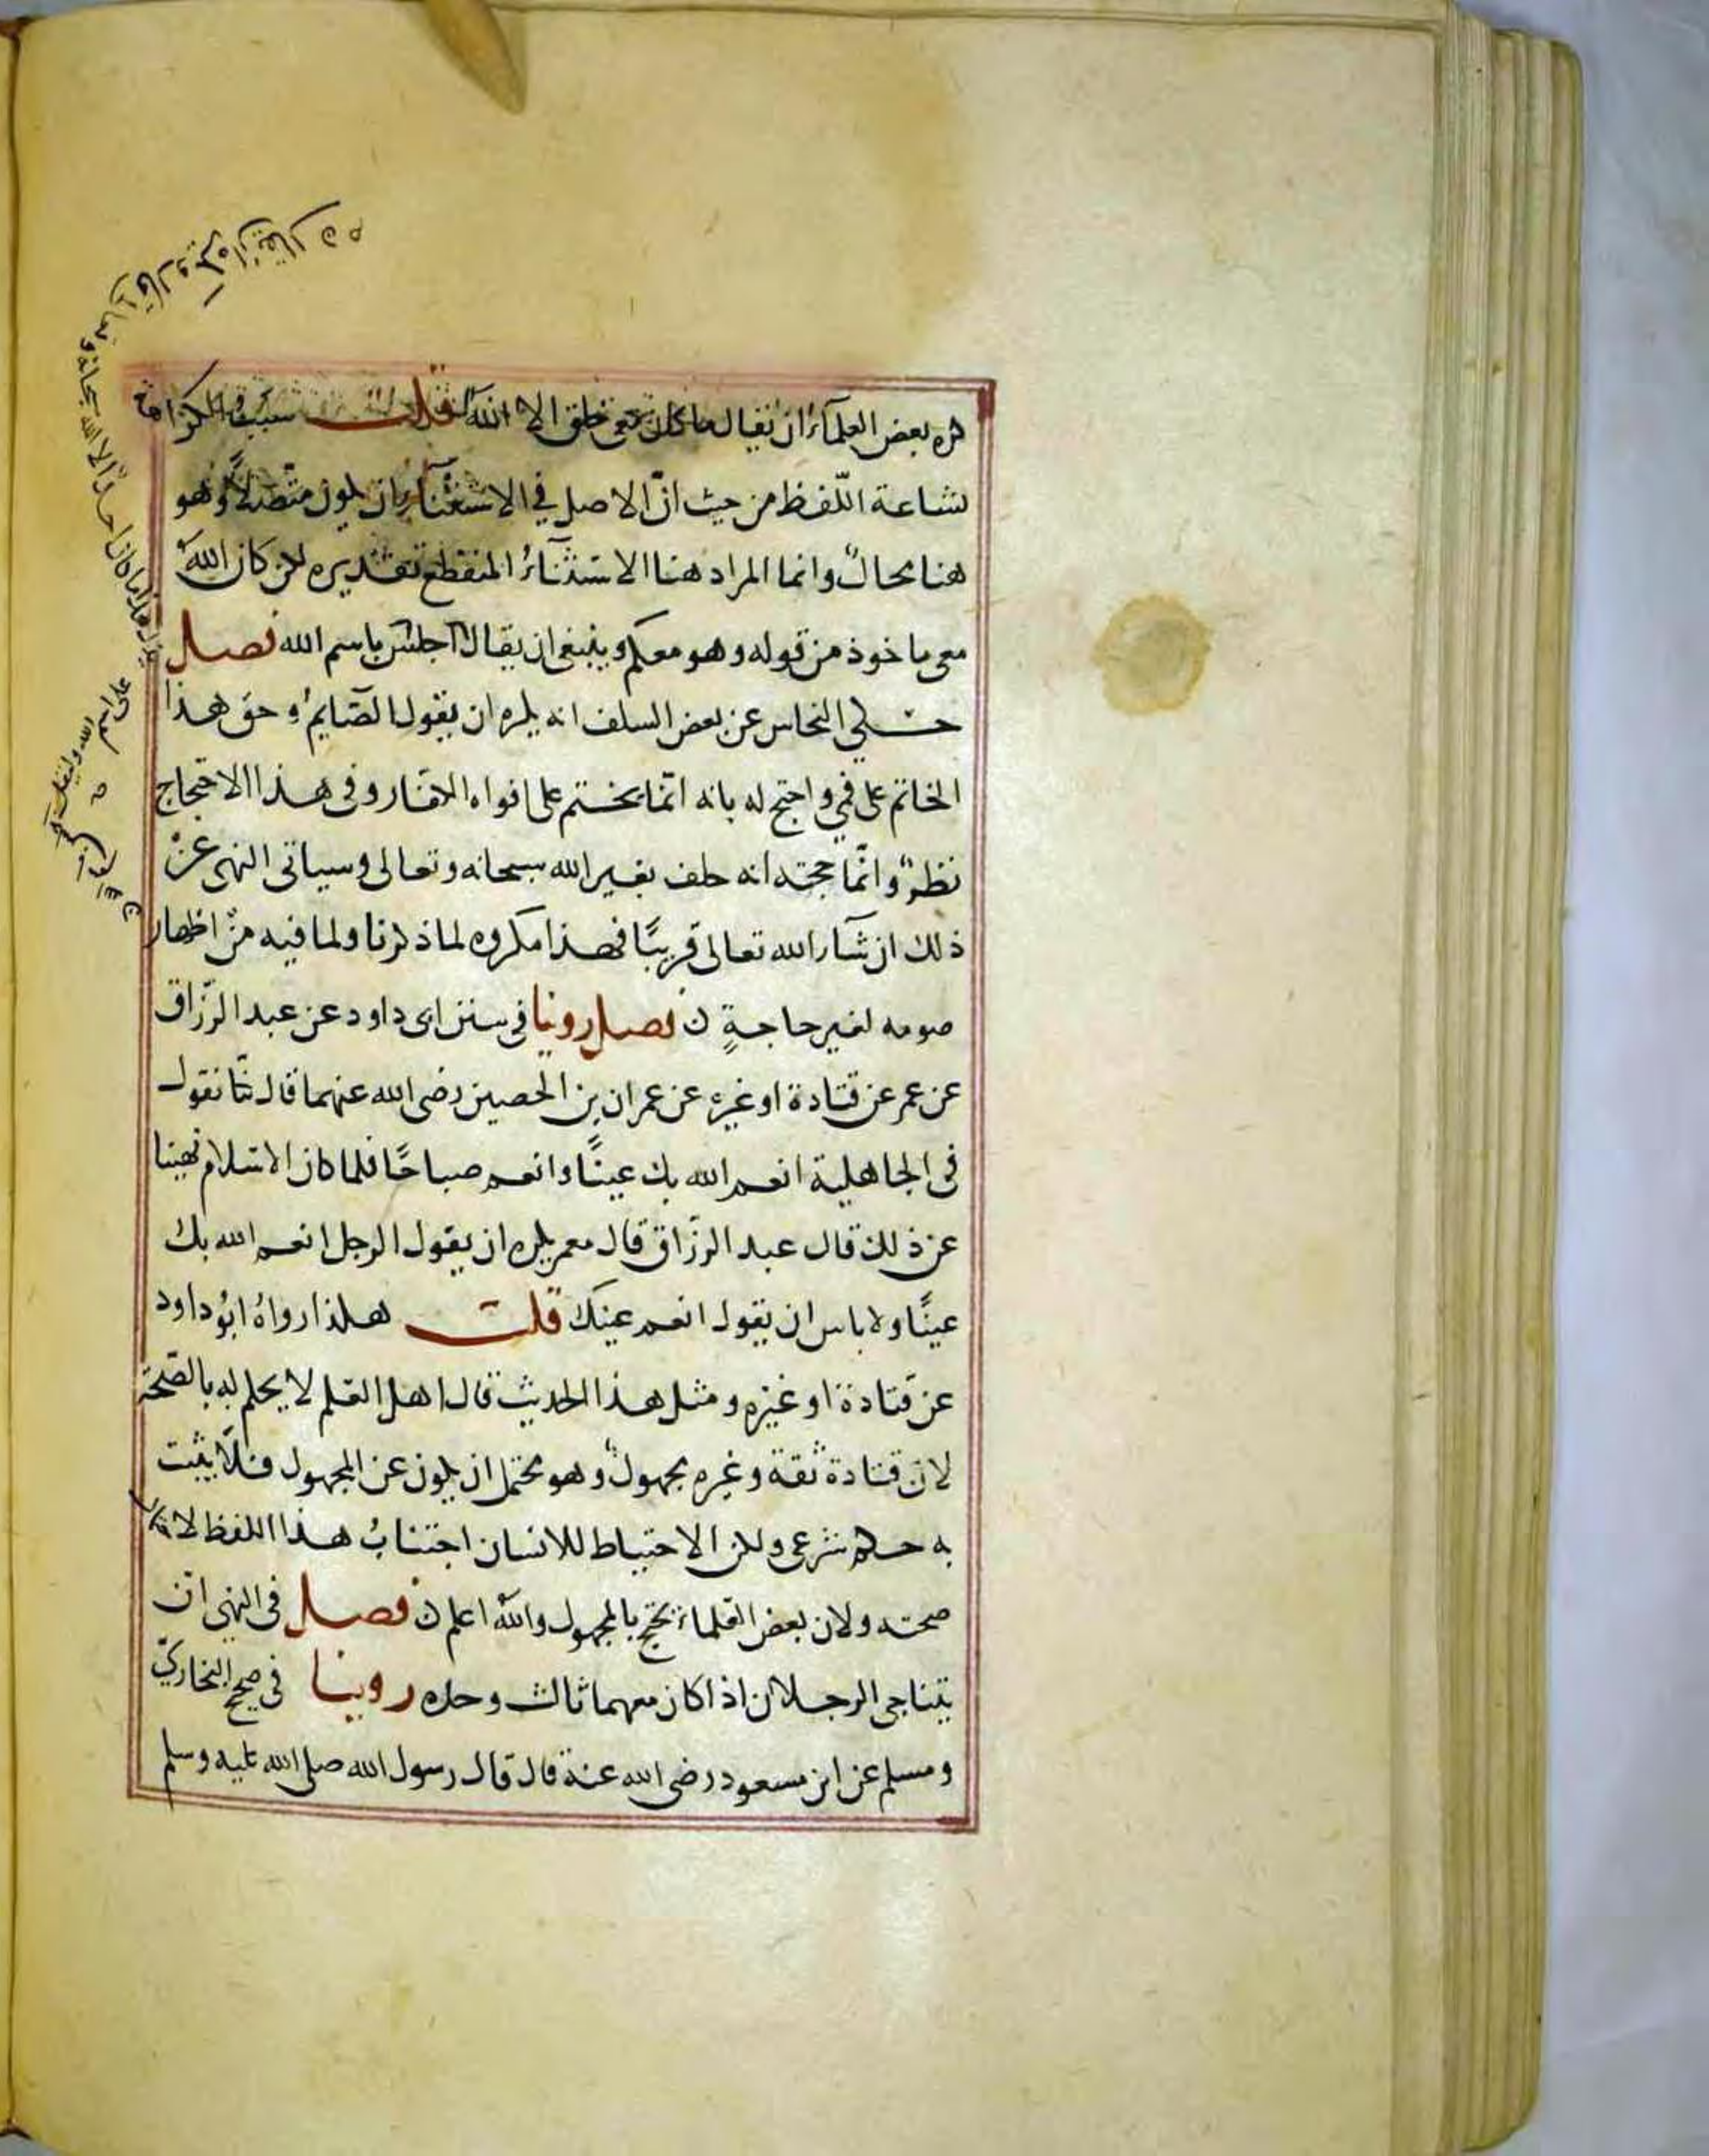 كره بعض العلماء ان يقال ما كان معي خلق الا الله قلت سبب الكراهة
بشاعة اللفظ من حيث ان الاصل في الاستثناء ان يكون متصلا وهو
هنا محال وانما المراد هنا الاستثناء المنقطع تقديره لكن كان الله
معي ماخوذ من قوله وهو معكم وينبغي ان يقال اجلس باسم الله فصل
حكي النحاس عن بعض السلف انه يكره ان يقول الصايم وحق هذا
الخاتم على فمي واحتج له بانه انما يختم على افواه الكفار وفي هذا الاحتجاج
نظر وانما حجته انه حلف بغير الله سبحانه وتعالى وسياتي النهي عن
ذلك ان شاء الله تعالى قريبًا فهذا مكروه لما ذكرنا ولما فيه من اظهار
صومه لغير حاجةٍ ن فصل روينا في سنن ابى داود عن عبد الرزاق
عن عمر عن قتادة او غيره عن عمران بن الحصين رضى الله عنهما قال كنا نقول
في الجاهلية انعم الله بك عينًا وانعم صباحًا فلما كان الاسلام نهينا
عن ذلك قال عبد الرزّاق قال معمر يكره ان يقول الرجل انعم الله بك
عينًا ولا باس ان يقول انعم عينك قلت هكذا رواهُ ابوُ داود
عن قتادة او غيره ومثل هذا الحديث قال اهل العلم لا يحكم له بالصّحة
لان قتادة ثقة وغيره مجهولٌ وهو محتمل ان يكون عن المجهول فلا يثبت
به حكم شرعي ولكن الاحتياط للانسان اجتنابُ هذا اللفظ لاحتمال
صحته ولان بعض العلماء يحتج بالمجهول والله اعلم ن فصل في النهي ان
يتناجى الرجلان اذا كان معهما ثالث وحده روينا في صحيح البخاريّ
ومسلم عن ابن مسعود رضى الله عنه قال قال رسول الله صلى الله عليه وسلم